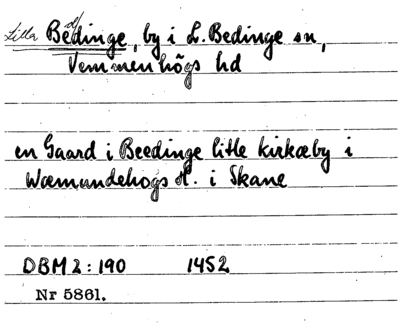 Lilla Beddinge, by i L. Bedinge sn,
Vemmenhögs hd
en Gaard i Beedinge litle kirkæby i
Wæmundehogs H. i Skane
DBM 2: 190 1452
Nr 5861.